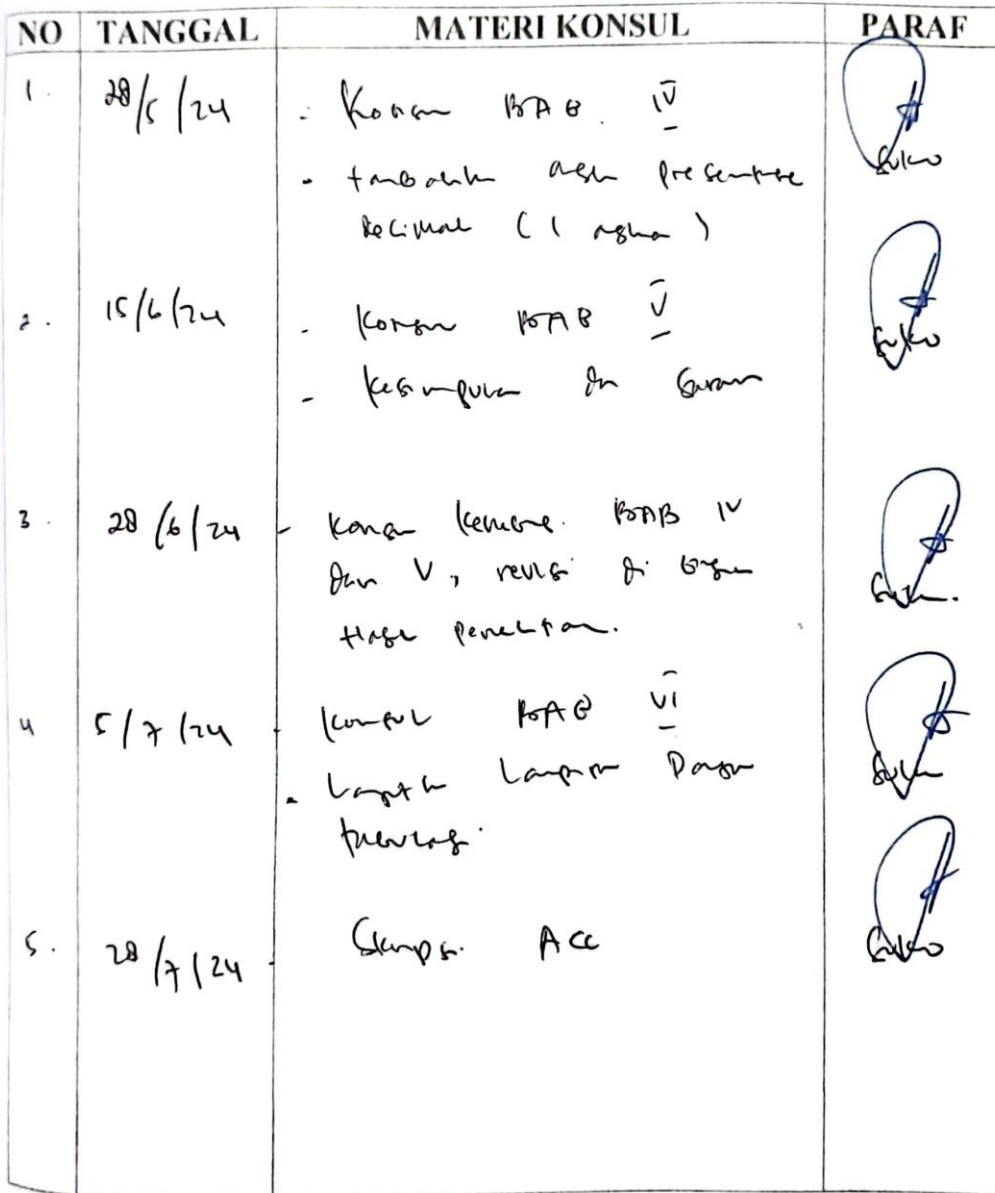 NO TANGGAL MATERI KONSUL PARAF
1. 28/5/24 - Konsul BAB IV
- tambahkan angka presentase
decimal (1 angka)
Suko
2. 15/6/24 - Konsul BAB V
- Kesimpulan dan Saran
Suko
3. 28/6/24 - Konsul kembali BAB IV
dan V, revisi di bagian
Hasil penelitian.
4 5/7/24 - Konsul BAB VI
- Lampiran
5. 28/7/24 - Skripsi ACC
Suko